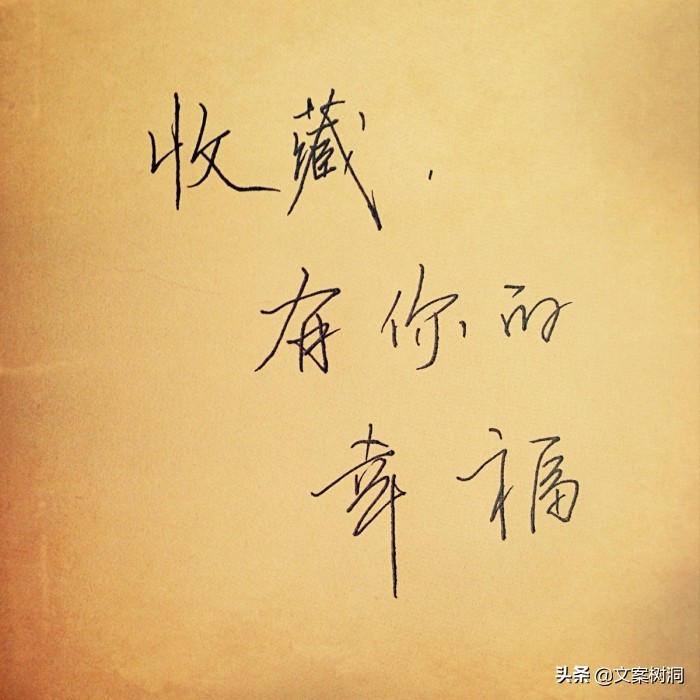 收藏，
有你的
幸福
头条 @文案树洞